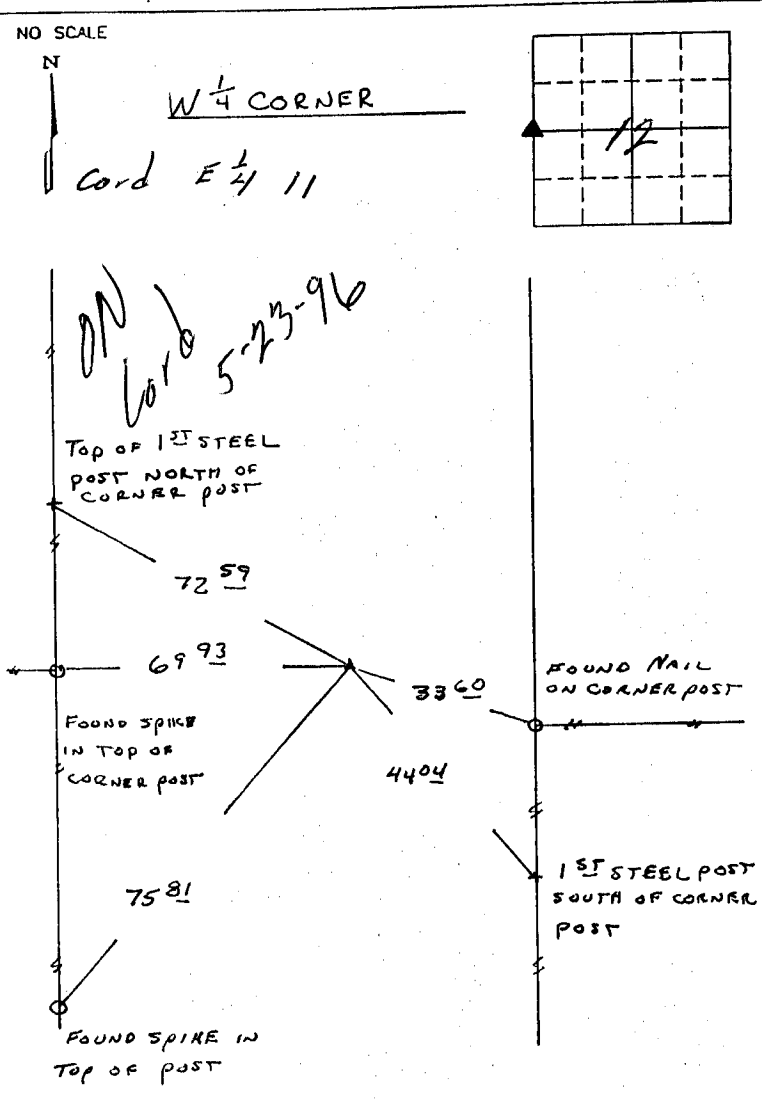 NO SCALE
N
W 1/4 CORNER
Cord E 1/4 11
12
ON
Cord 5-23-96
TOP OF 1ST STEEL
POST NORTH OF
CORNER POST
72 59
69 93
33 60
FOUND NAIL
ON CORNER POST
FOUND SPIKE
IN TOP OF
CORNER POST
44 04
1ST STEEL POST
SOUTH OF CORNER
POST
75 81
FOUND SPIKE IN
TOP OF POST